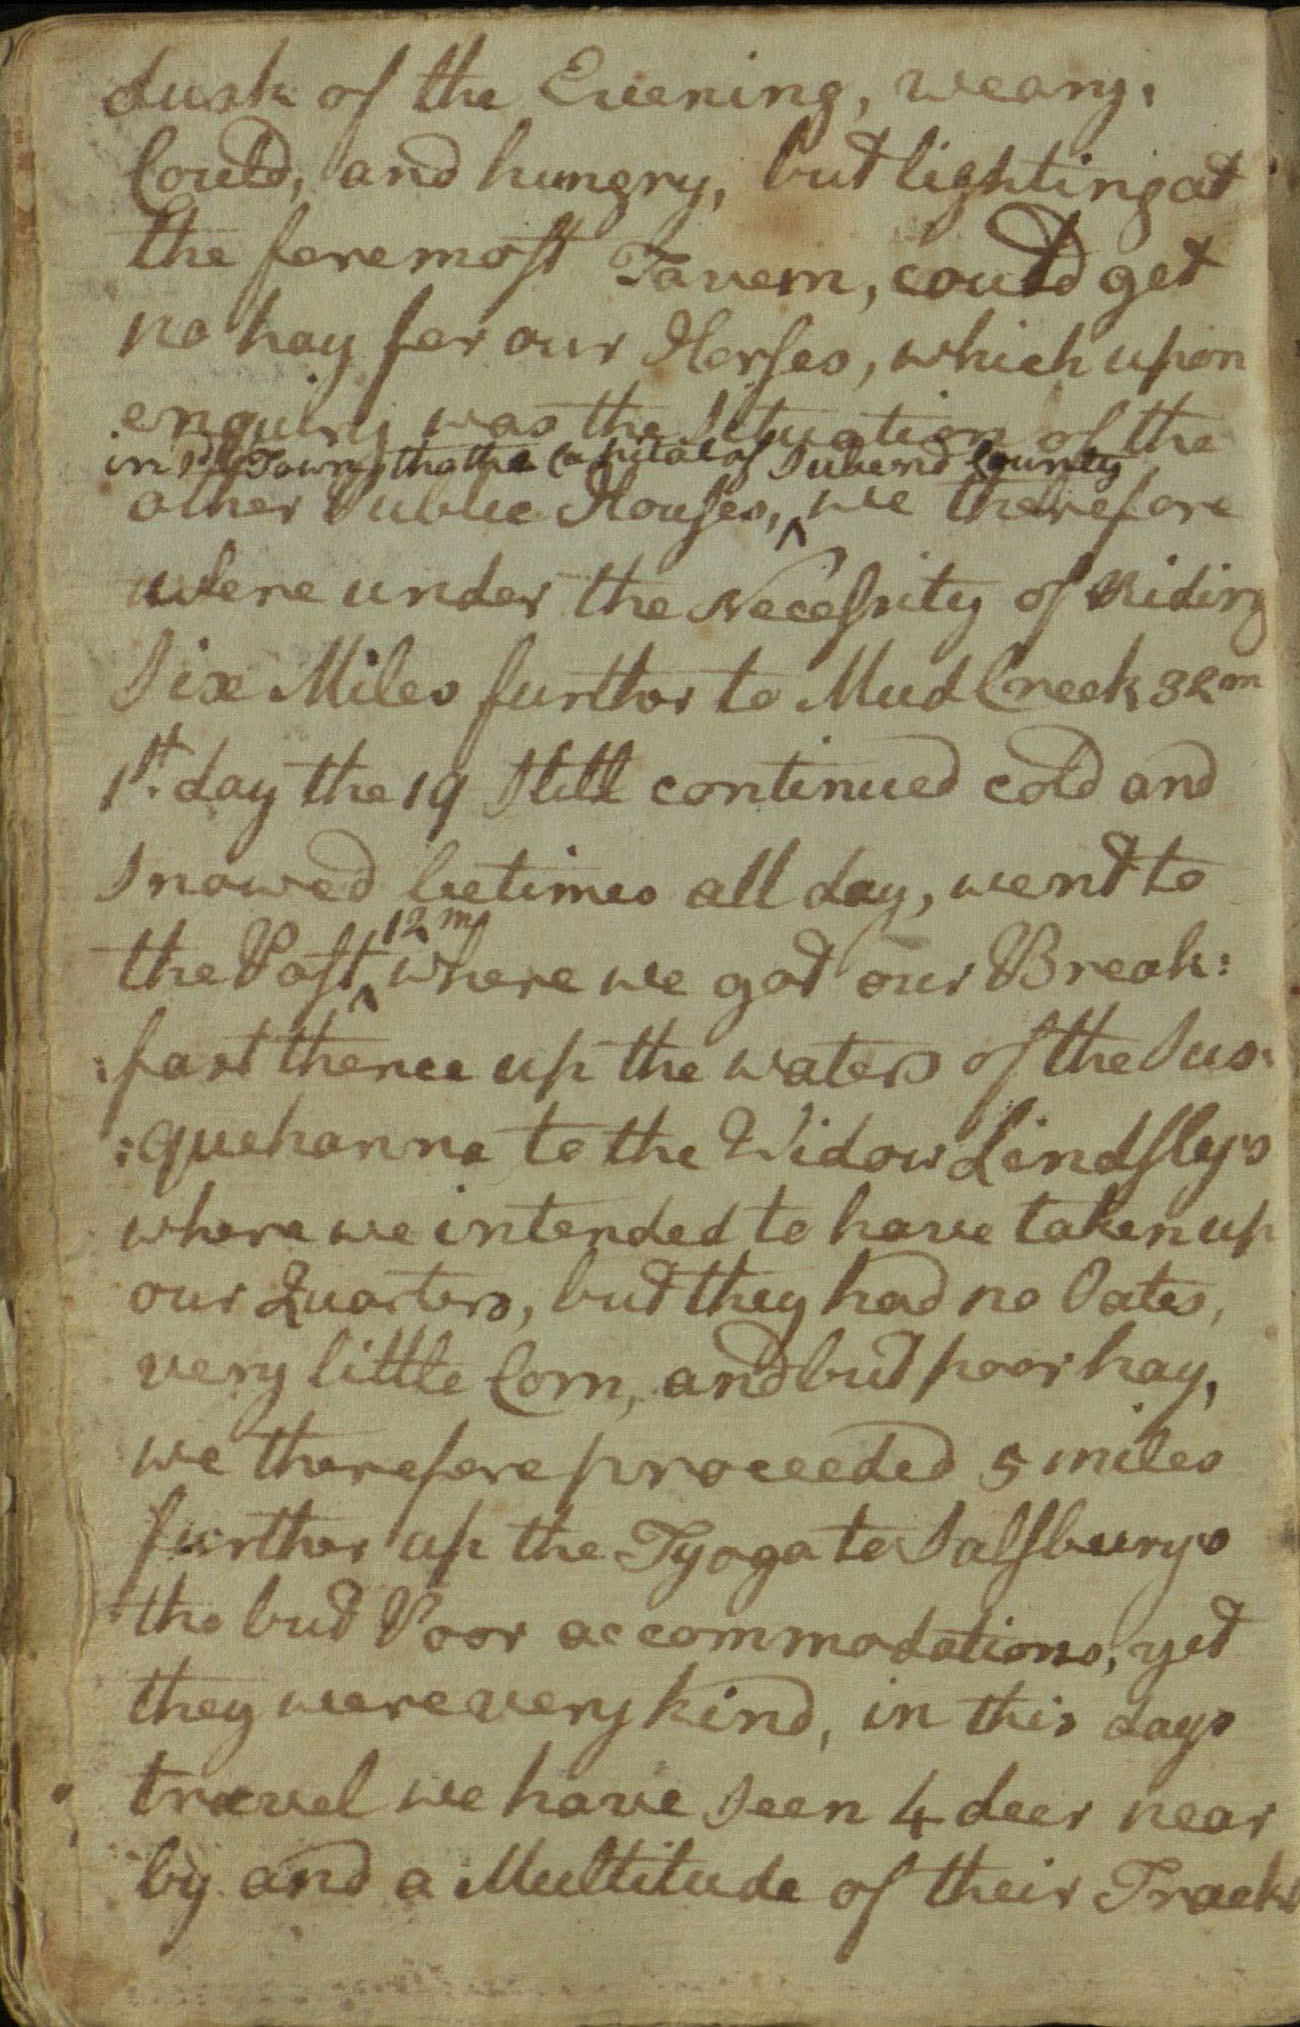 dusk of the Evening, weary,
Could, and hungry, but lighting at
the foremost Tavern, could get
no hay for our Horses, which upon
enquiry was the Situation of the
in sd. Town, tho the Capital of Steuben County
other Public Houses, ^ we therefore
were under the Necessity of Riding
Six Miles further to Mud Creek 32m
1st. day the 19 Still continued cold and
Snowed betimes all day, went to
12 m,
the Post ^ where we got our Break:
:fast thence up the waters of the Sus:
:quehanna to the Widow Lindsley's
where we intended to have taken up
our Quarters, but they had no Oates,
very little Corn, and but poor hay,
we therefore proceeded 5 miles
further up the Tyoga to Salsburys
tho but Poor accommodations, yet
they were very kind, in this days
travel we have Seen 4 deer near
by and a Multitude of their Tracks